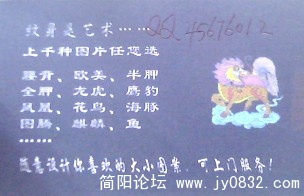 纹身是艺术……
QQ 45676012
上千种图片任您选
腰背、欧美、半胛
全胛、龙虎、鹰豹
凤凰、花鸟、海豚
图腾、麒麟、鱼
……
随意设计你喜欢的大小图案，可上门服务！
简阳论坛 www.jy0832.com